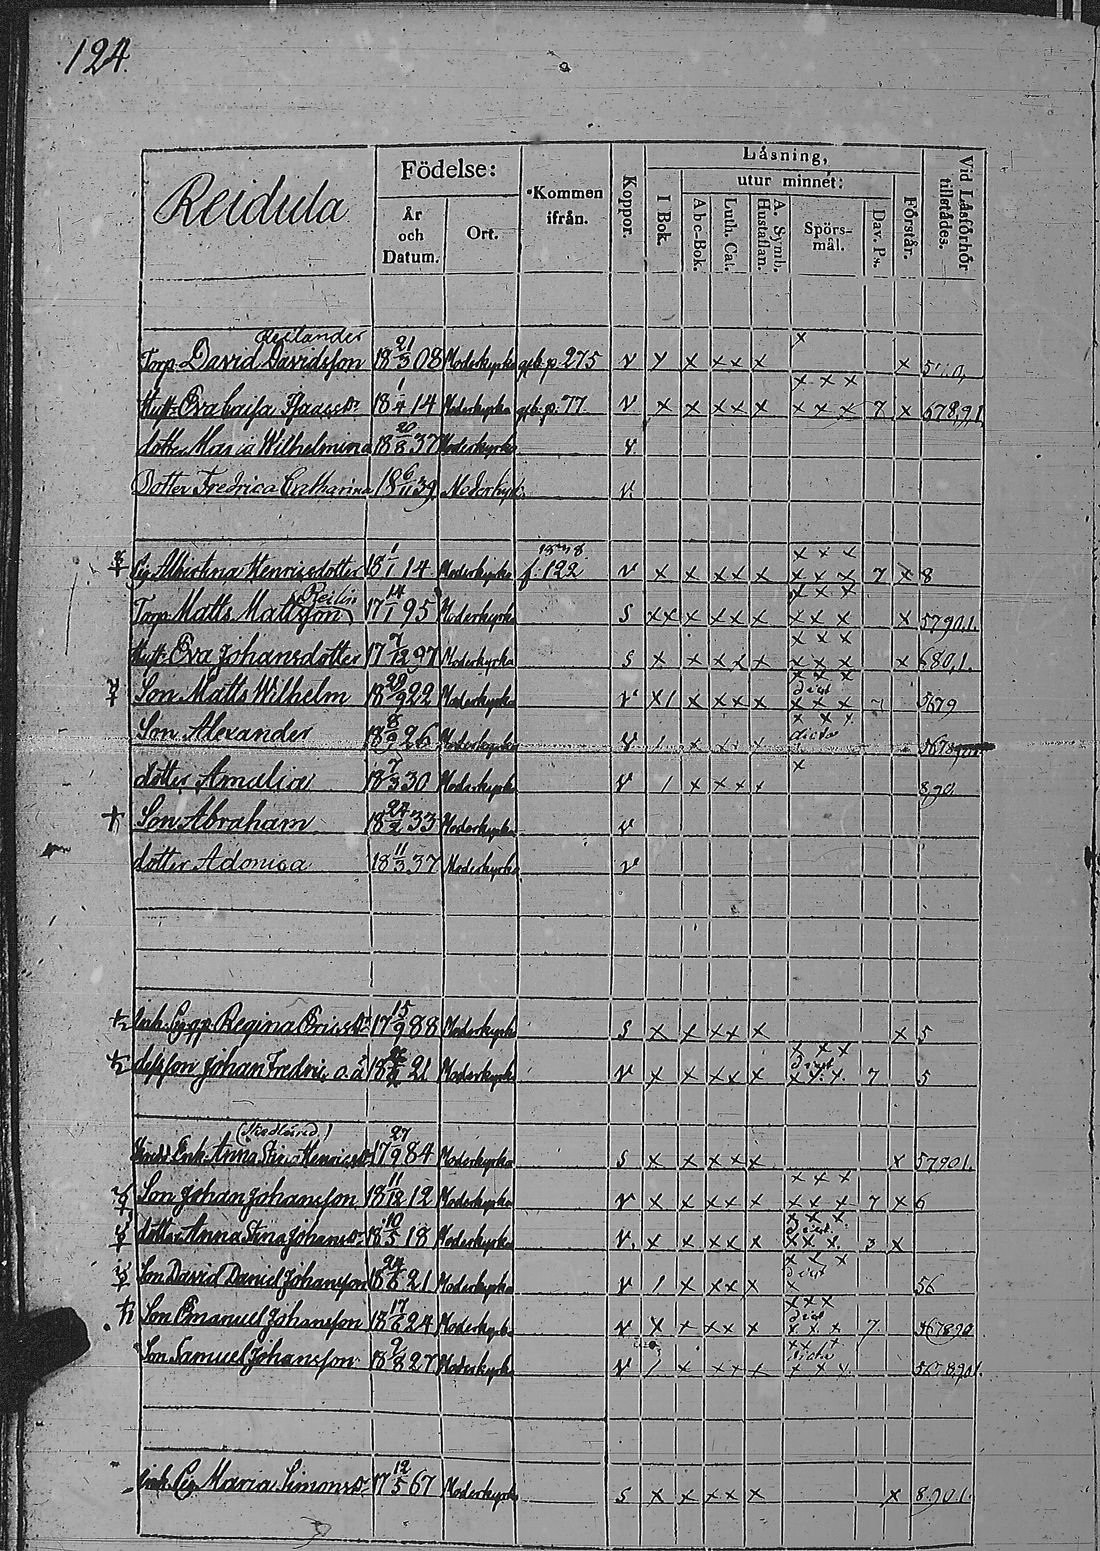 124.
Reidula
Födelse:
År och Datum.
Ort.
Kommen ifrån.
Koppor.
Läsning,
I Bok.
utur minnet:
A b c-Bok.
Luth. Cat.
A. Symb. Hustaflan.
Spörs-mål.
Dav. Ps.
Förstår.
Vid Läsförhör tillstädes.
Reilander
x
Torp. David Davidsson 18 21/3 08 Moderkyrka p. 275 v x x x x x x
x x x
Hust. Eva Caisa Isaacsdr 18 1/4 14 Moderkyrka p. 77 v x x x x x x x x 7 x 678,91
dotter Maria Wilhelmina 18 20/8 37 Moderkyrka v
Dotter Fredrica Catharina 18 6/11 39 Moderkyrk. v.
x x x
Albertina Henricsdotter 18 1/1 14 Moderkyrka f. 122 v x x x x x x x x 7 x 8
Reilin x x x
Torp. Matts Mattsson 17 14/1 95 Moderkyrka s x x x x x x x x x x 57901.
x x x
Hust. Eva Johansdotter 17 7/12 97 Moderkyrka s x x x x x x x x x 680,1.
x x x
Son Matts Wilhelm 18 29/9 22 Moderkyrka v x 1 x x x x x x x 7 5679
x x x
Son Alexander 18 8/9 26 Moderkyrka v 1 x x x x dicto
x
dotter Amalia 18 7/3 30 Moderkyrka v 1 x x x x 890
Son Abraham 18 24/2 33 Moderkyrka v
dotter Adonica 18 11/3 37 Moderkyrka v
enk. Regina Ericsdr 17 15/9 88 Moderkyrka s x x x x x x 5
x x x
dess son Johan Fredric o.ä. 18 21 Moderkyrka v x x x x x x x x 7 5
Enk. Anna Stina Henricsdr 17 27/9 84 Moderkyrka s x x x x x x 57901.
x x x
Son Johan Johansson 18 11/12 12 Moderkyrka v x x x x x x x x 7 x 6
x x x
dotter Anna Stina Johansdr 18 10/5 18 Moderkyrka v. x x x x x x x x 3 x
x x x
Son David Daniel Johansson 18 24/8 21 Moderkyrka v 1 x x x x x 56
x x x
Son Emanuel Johansson 18 17/6 24 Moderkyrka v x x x x x x x x 7 567890
Son Samuel Johansson 18 9/8 27 Moderkyrka v 1 x x x x x x x
Maria Simonsdr 17 12/5 67 Moderkyrka s x x x x x x 8.901.